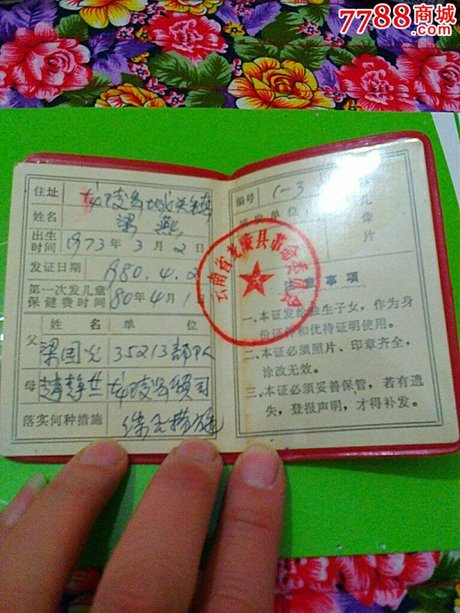 7788商城
住址 龙陵县城关镇
姓名 梁燕
出生时间 1973年3月2日
发证日期 1980.4.2
第一次发儿童保健费时间 80年4月1
姓名 单位
父 梁国光 35213部队
母 龙陵县
落实何种措施
编号 1-3
单位
片
云南省龙陵县革命委员会
注意事项
一、本证发给独生子女，作为身份证件和优待证明使用。
二、本证必须照片、印章齐全，涂改无效。
三、本证必须妥善保管，若有遗失，登报声明，才得补发。